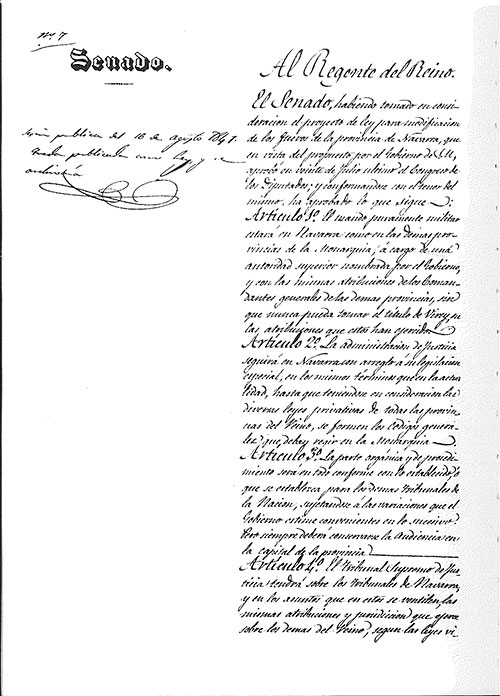 nº 7
Senado.
Sesion publica del 16 de agosto 1841.
Queda publicada como ley y se
archivará
Al Regente del Reino.
El Senado, habiendo tomado en consi-
deracion el proyecto de ley para modificacion
de los fueros de la provincia de Navarra, que
en vista del propuesto por el Gobierno de S.M.,
aprobó en veinte de Julio ultimo el Congreso de
los Diputados; y conformandose con el tenor del
mismo, ha aprobado lo que sigue:
Articulo 1º. El mando puramente militar
estará en Navarra como en las demas pro-
vincias de la Monarquia, á cargo de una
autoridad superior nombrada por el Gobierno,
y con las mismas atribuciones de los Coman-
dantes generales de las demas provincias, sin
que nunca pueda tomar el titulo de Virey, ni
las atribuciones que estos han ejercido.
Articulo 2º. La administracion de Justicia
seguirá en Navarra con arreglo á su legislacion
especial, en los mismos terminos que en la actua-
lidad, hasta que teniendose en consideracion las
diversas leyes privativas de todas las provin-
cias del Reino, se formen los Codigos genera-
les que deban regir en la Monarquia.
Articulo 3º. La parte orgánica y de procedi-
miento será en todo conforme con lo establecido, ó
que se establezca para los demas Tribunales de
la Nacion, sujetandose á las variaciones que el
Gobierno estime convenientes en lo sucesivo.
Pero siempre deberá conservarse la Audiencia en
la capital de la provincia
Articulo 4º. El Tribunal Supremo de Jus-
ticia tendrá sobre los Tribunales de Navarra,
y en los asuntos que en estos se ventilen, las
mismas atribuciones y jurisdicion que ejerce
sobre los demas del Reino, segun las leyes vi-